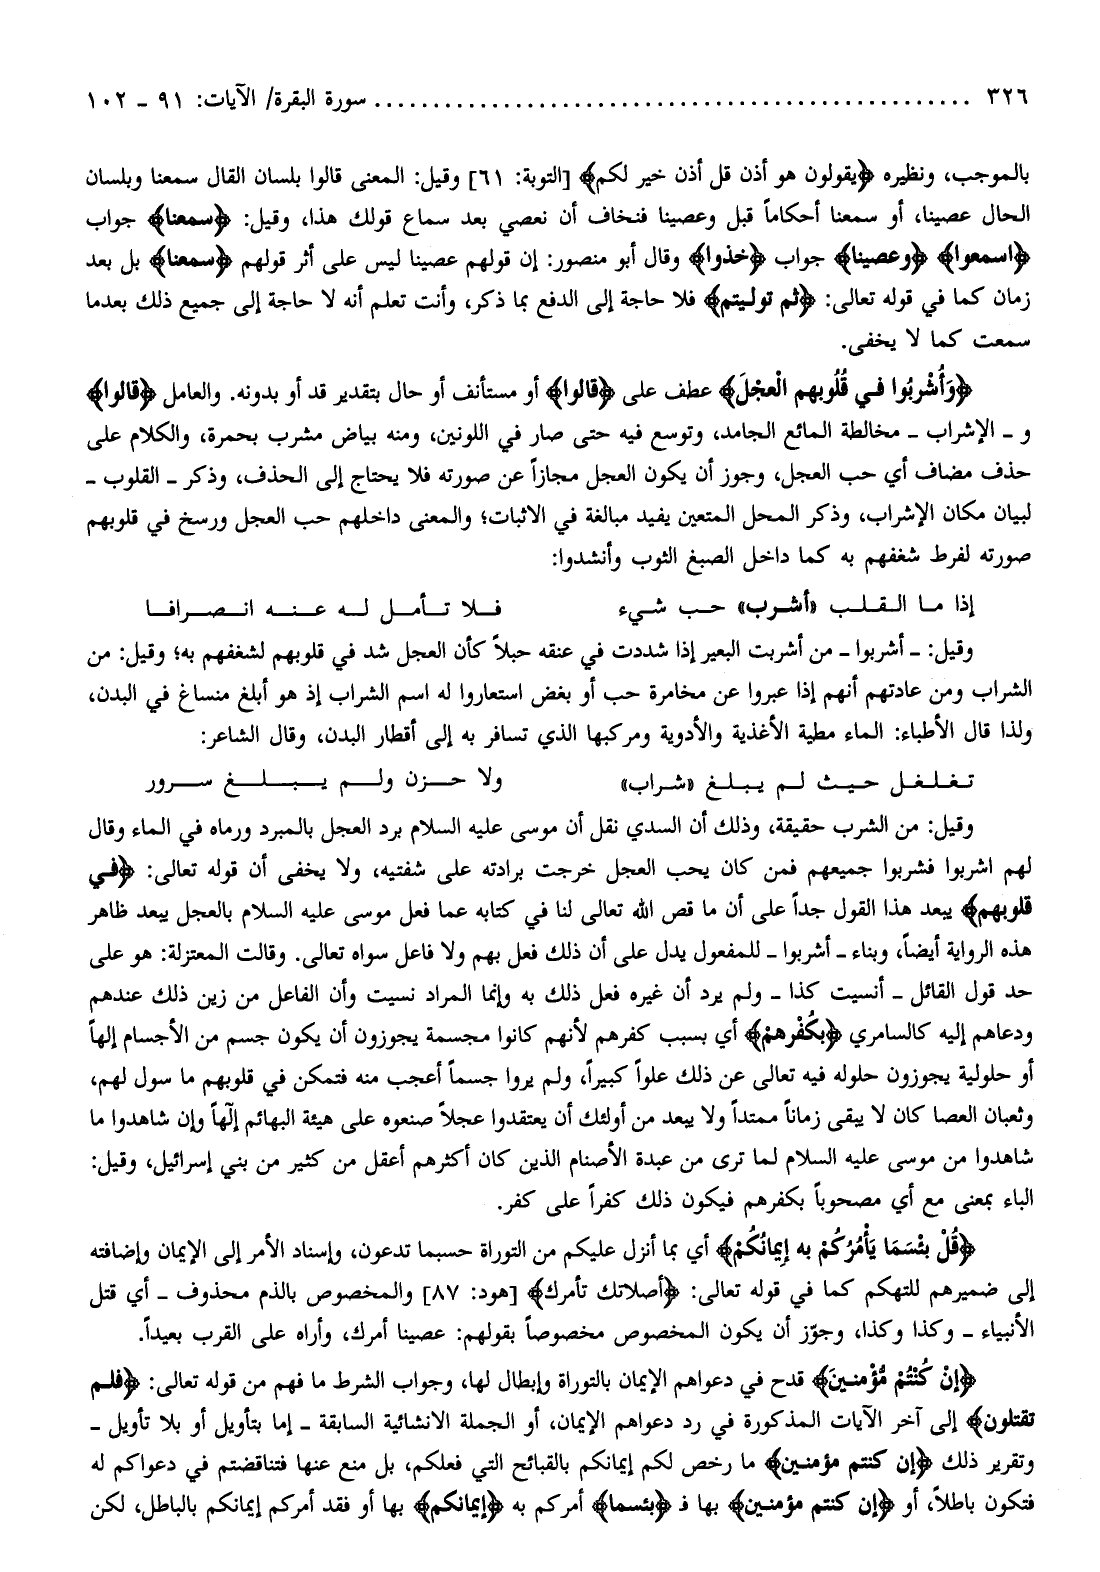 ٣٢٦ .................................................. سورة البقرة/ الآيات: ٩١ - ١٠٢
بالموجب، ونظيره ﴿يقولون هو أذن قل أذن خير لكم﴾ [التوبة: ٦١] وقيل: المعنى قالوا بلسان القال سمعنا وبلسان
الحال عصينا، أو سمعنا أحكاماً قبل وعصينا فنخاف أن نعصي بعد سماع قولك هذا، وقيل: ﴿سمعنا﴾ جواب
﴿اسمعوا﴾ ﴿وعصينا﴾ جواب ﴿خذوا﴾ وقال أبو منصور: إن قولهم عصينا ليس على أثر قولهم ﴿سمعنا﴾ بل بعد
زمان كما في قوله تعالى: ﴿ثم توليتم﴾ فلا حاجة إلى الدفع بما ذكر، وأنت تعلم أنه لا حاجة إلى جميع ذلك بعدما
سمعت كما لا يخفى.
﴿وَأُشْرِبُوا في قُلُوبهم الْعجْلَ﴾ عطف على ﴿قالوا﴾ أو مستأنف أو حال بتقدير قد أو بدونه. والعامل ﴿قالوا﴾
و ـ الإشراب ـ مخالطة المائع الجامد، وتوسع فيه حتى صار في اللونين، ومنه بياض مشرب بحمرة، والكلام على
حذف مضاف أي حب العجل، وجوز أن يكون العجل مجازاً عن صورته فلا يحتاج إلى الحذف، وذكر ـ القلوب ـ
لبيان مكان الإشراب، وذكر المحل المتعين يفيد مبالغة في الاثبات؛ والمعنى داخلهم حب العجل ورسخ في قلوبهم
صورته لفرط شغفهم به كما داخل الصبغ الثوب وأنشدوا:
إذا ما القلب «أشرب» حب شيء فلا تأمل له عنه انصرافا
وقيل: ـ أشربوا ـ من أشربت البعير إذا شددت في عنقه حبلاً كأن العجل شد في قلوبهم لشغفهم به؛ وقيل: من
الشراب ومن عادتهم أنهم إذا عبروا عن مخامرة حب أو بغض استعاروا له اسم الشراب إذ هو أبلغ منساغ في البدن،
ولذا قال الأطباء: الماء مطية الأغذية والأدوية ومركبها الذي تسافر به إلى أقطار البدن، وقال الشاعر:
تغلغل حيث لم يبلغ «شراب» ولا حزن ولم يبلغ سرور
وقيل: من الشرب حقيقة، وذلك أن السدي نقل أن موسى عليه السلام برد العجل بالمبرد ورماه في الماء وقال
لهم اشربوا فشربوا جميعهم فمن كان يحب العجل خرجت برادته على شفتيه، ولا يخفى أن قوله تعالى: ﴿في
قلوبهم﴾ يبعد هذا القول جداً على أن ما قص الله تعالى لنا في كتابه عما فعل موسى عليه السلام بالعجل يبعد ظاهر
هذه الرواية أيضاً، وبناء ـ أشربوا ـ للمفعول يدل على أن ذلك فعل بهم ولا فاعل سواه تعالى. وقالت المعتزلة: هو على
حد قول القائل ـ أنسيت كذا ـ ولم يرد أن غيره فعل ذلك به وإنما المراد نسيت وأن الفاعل من زين ذلك عندهم
ودعاهم إليه كالسامري ﴿بكُفْرهمْ﴾ أي بسبب كفرهم لأنهم كانوا مجسمة يجوزون أن يكون جسم من الأجسام إلهاً
أو حلولية يجوزون حلوله فيه تعالى عن ذلك علواً كبيراً، ولم يروا جسماً أعجب منه فتمكن في قلوبهم ما سول لهم،
وثعبان العصا كان لا يبقى زماناً ممتداً ولا يبعد من أولئك أن يعتقدوا عجلاً صنعوه على هيئة البهائم إلٰهاً وإن شاهدوا ما
شاهدوا من موسى عليه السلام لما ترى من عبدة الأصنام الذين كان أكثرهم أعقل من كثير من بني إسرائيل، وقيل:
الباء بمعنى مع أي مصحوباً بكفرهم فيكون ذلك كفراً على كفر.
﴿قُلْ بئْسَمَا يَأْمُرُكُمْ به إيمَانُكُمْ﴾ أي بما أنزل عليكم من التوراة حسبما تدعون، وإسناد الأمر إلى الإيمان وإضافته
إلى ضميرهم للتهكم كما في قوله تعالى: ﴿أصلاتك تأمرك﴾ [هود: ٨٧] والمخصوص بالذم محذوف ـ أي قتل
الأنبياء ـ وكذا وكذا، وجوّز أن يكون المخصوص مخصوصاً بقولهم: عصينا أمرك، وأراه على القرب بعيداً.
﴿إنْ كُنْتُمْ مُؤْمنينَ﴾ قدح في دعواهم الإيمان بالتوراة وإبطال لها، وجواب الشرط ما فهم من قوله تعالى: ﴿فلم
تقتلون﴾ إلى آخر الآيات المذكورة في رد دعواهم الإيمان، أو الجملة الانشائية السابقة ـ إما بتأويل أو بلا تأويل ـ
وتقرير ذلك ﴿إن كنتم مؤمنين﴾ ما رخص لكم إيمانكم بالقبائح التي فعلكم، بل منع عنها فتناقضتم في دعواكم له
فتكون باطلاً، أو ﴿إن كنتم مؤمنين﴾ بها فـ ﴿بئسما﴾ أمركم به ﴿إيمانكم﴾ بها أو فقد أمركم إيمانكم بالباطل، لكن